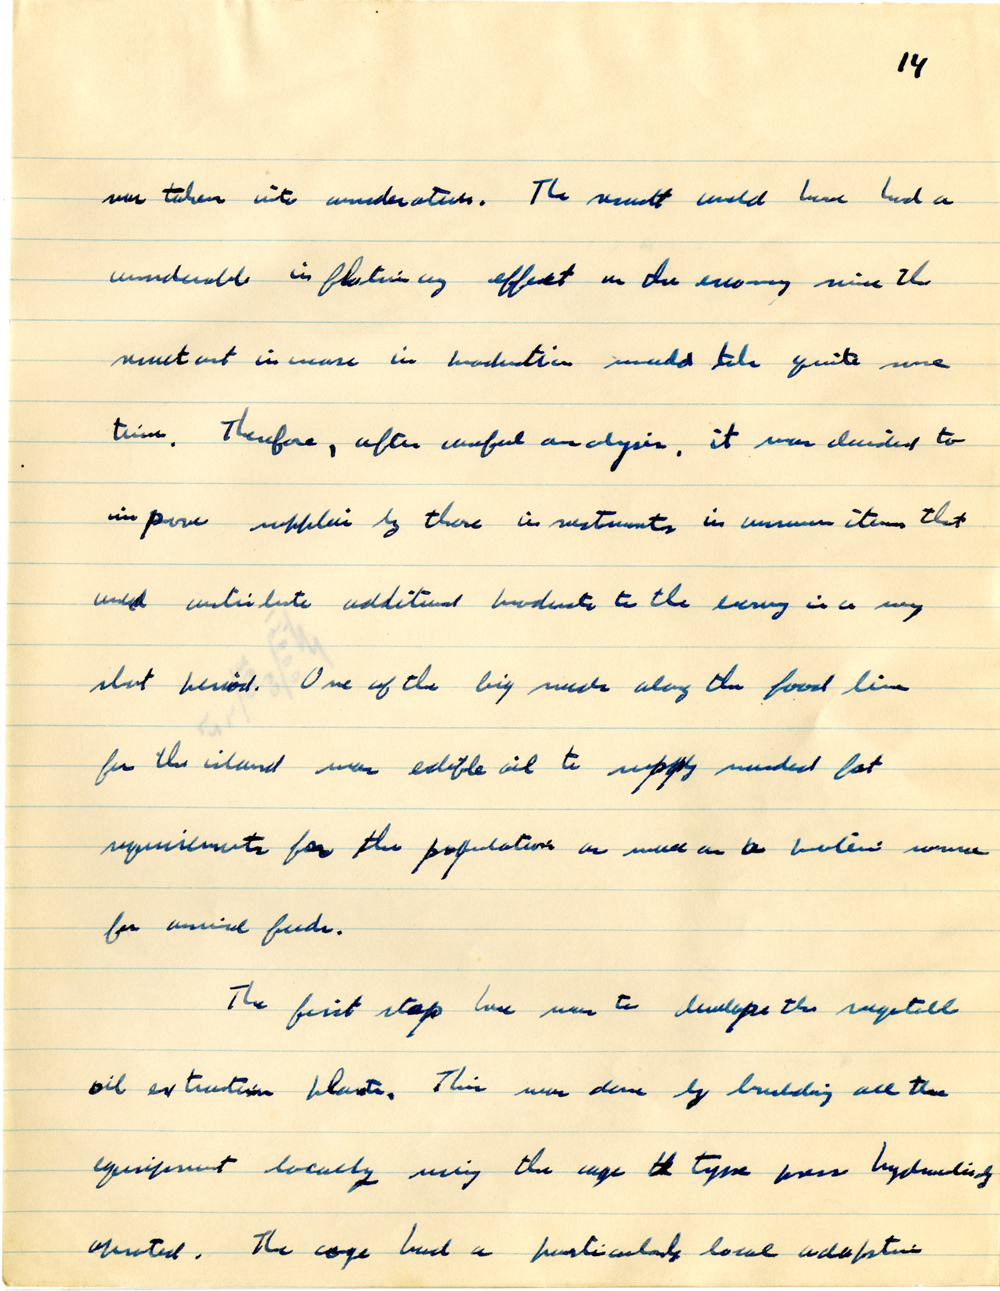 14
was taken into consideration. The result would have had a
considerable inflationary effect on the economy since the
resultant increase in production would take quite some
time. Therefore, after careful analysis, it was decided to
improve supplies by those investments in consumer items that
would contribute additional products to the economy in a very
short period. One of the big needs along the food line
for the island was edible oil to supply needed fat
requirements for the population as well as a protein source
for animal feeds.
The first step here was to develope the vegetable
oil extraction plants. This was done by building all the
equipment locally using the cage type press hydraulicly
operated. The cage had a particularly local adaption